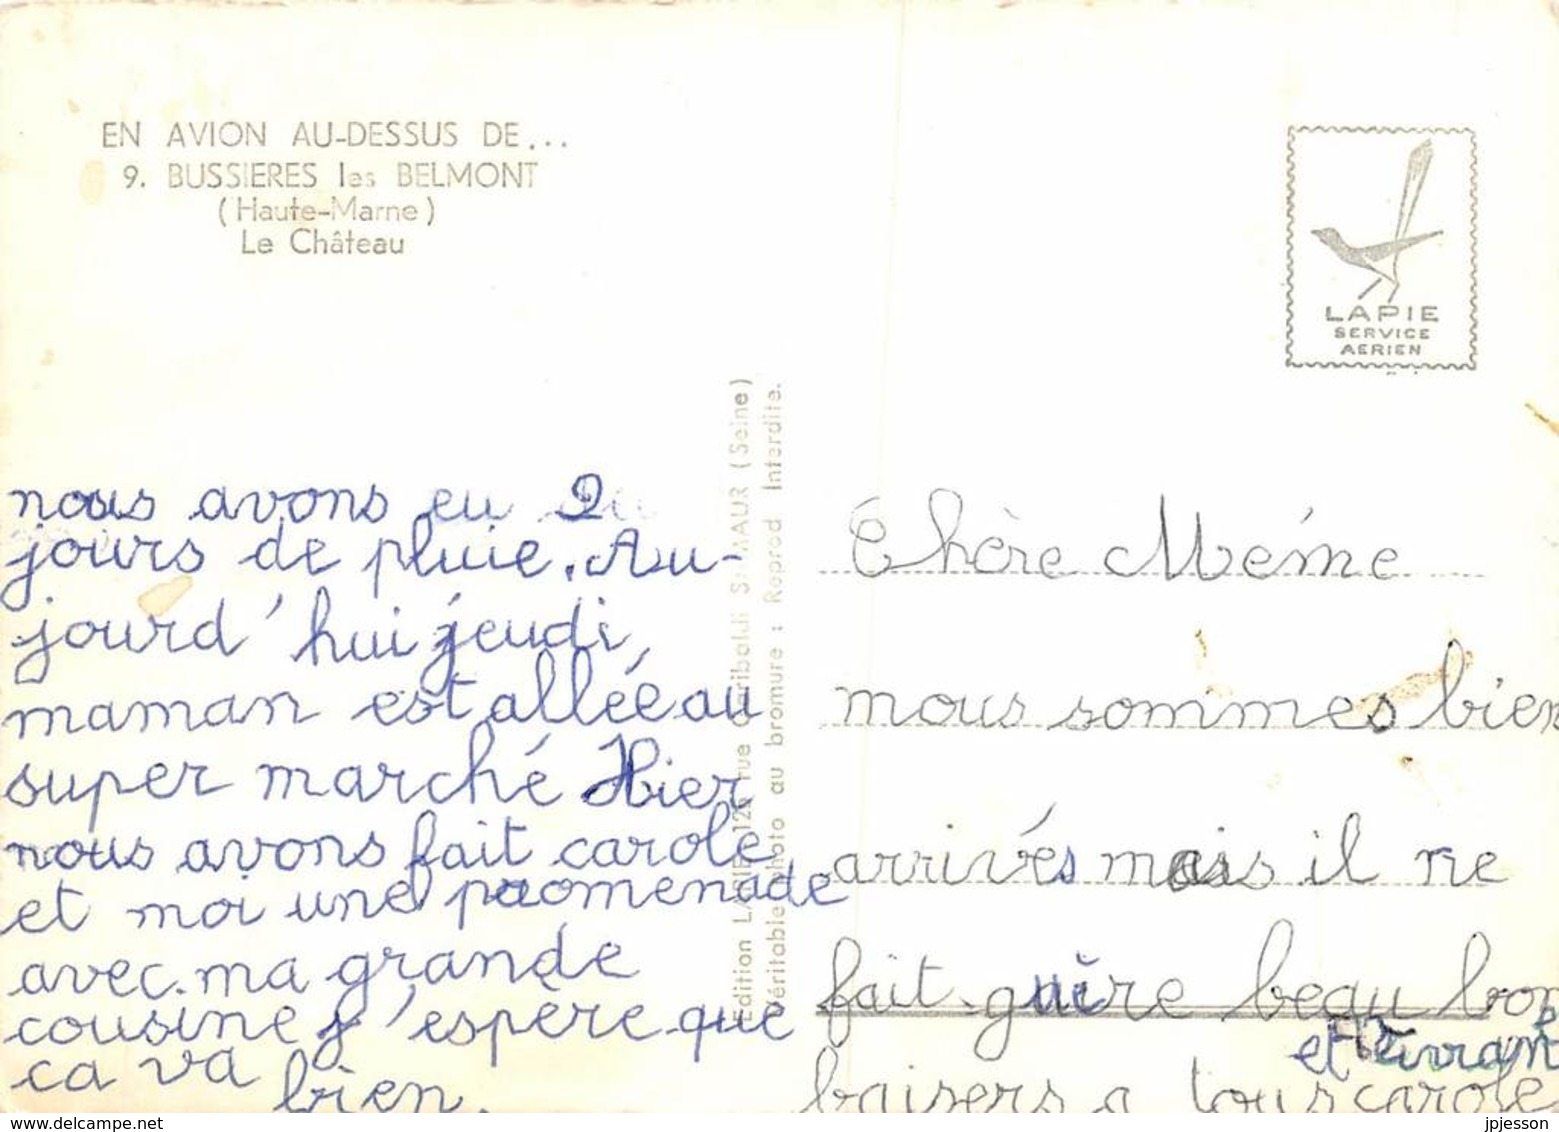 EN AVION AU-DESSUS DE...
9. BUSSIERES les BELMONT
(Haute-Marne)
Le Château
LAPIE
SERVICE
AERIEN
nous avons eu 2
jours de pluie. Au-
jourd'hui jeudi,
maman est allée au
super marché Hier
nous avons fait carole
et moi une promenade
avec ma grande
cousine j'espère que
ca va
bien.
Edition LAPIE 126 rue Gariboldi St-MAUR (Seine)
Véritable photo au bromure : Reprod Interdite.
Chère Méme
nous sommes bien
arrivés mais il ne
fait guère beau bon
baisers a tous carole
et
delcampe.net
jpjesson